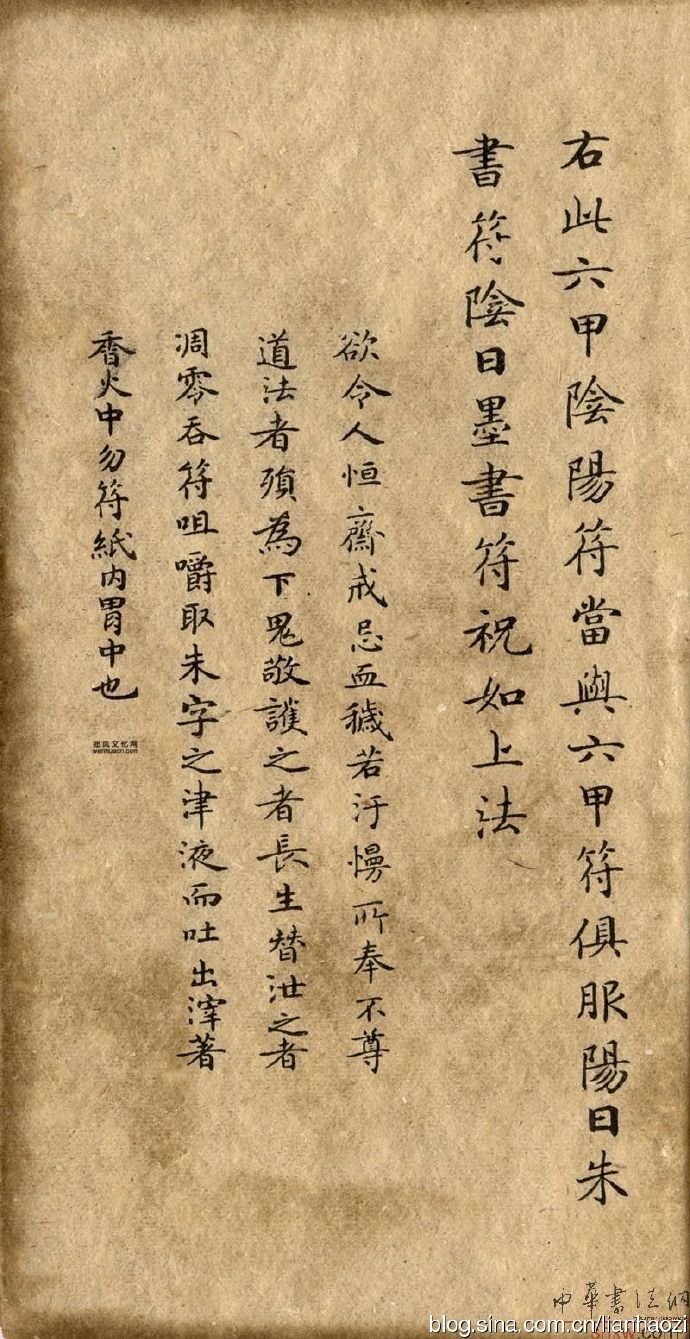 右此六甲陰陽符當與六甲符俱服陽日朱
書符陰日墨書符祝如上法
欲令人恒齋戒忌血穢若汙慢所奉不尊
道法者須為下鬼敬護之者長生替泄之者
凋零吞符咀嚼取朱字之津液而吐出滓著
香火中勿符紙內胃中也
中華書法網
blog.sina.com.cn/lianhaozi